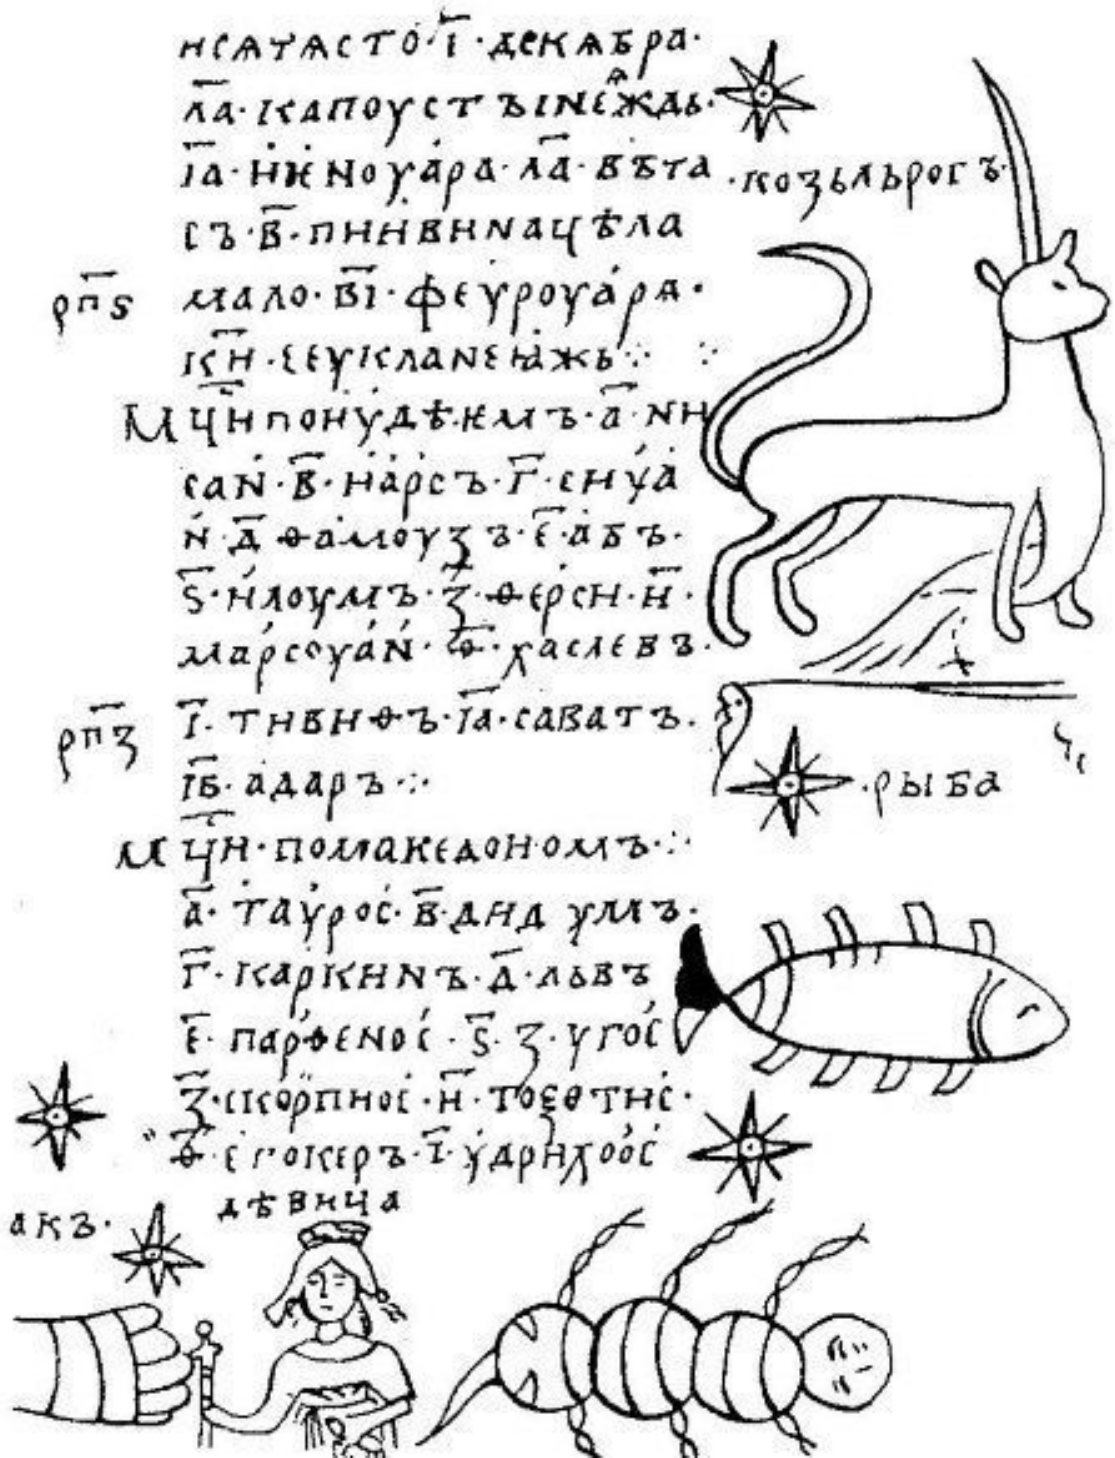 нсѧтѧсто·і҃·декѧбра·
ла҃·капоустъıнеѧждь·
іа҃·нкноуара·ла҃·вѣта ·козьльрогъ·
съ·в҃·пннвннацѣла
рп҃ѕ мало·ві҃·феѵроуара·
кн҃·сеукланеꙗжь჻
Мцн҃понѵдѣкмъ·а҃·нн
сан·в҃·нарсъ·г҃·снѵа
н·д҃·ѳамоузъ·е҃·авъ·
ѕ҃·нлоумъ·з҃·ѳерсн·н҃·
марсоуан·ѳ҃·хаслевъ·
рп҃з і҃·тнвнѳъ·іа҃·саватъ·
ів҃·адаръ჻ ·рыба
Мцн҃·помакедономъ჻
а҃·таѵрос·в҃·днд ѵмъ·
г҃·каркннъ·д҃·львъ
е҃·парѳенос·ѕ҃·з·ѵгос
з҃·скорпнос·н҃·тоѯотнс·
ѳ҃·егокеръ·і҃·ѵдрнхоос
дѣвнца
акъ·